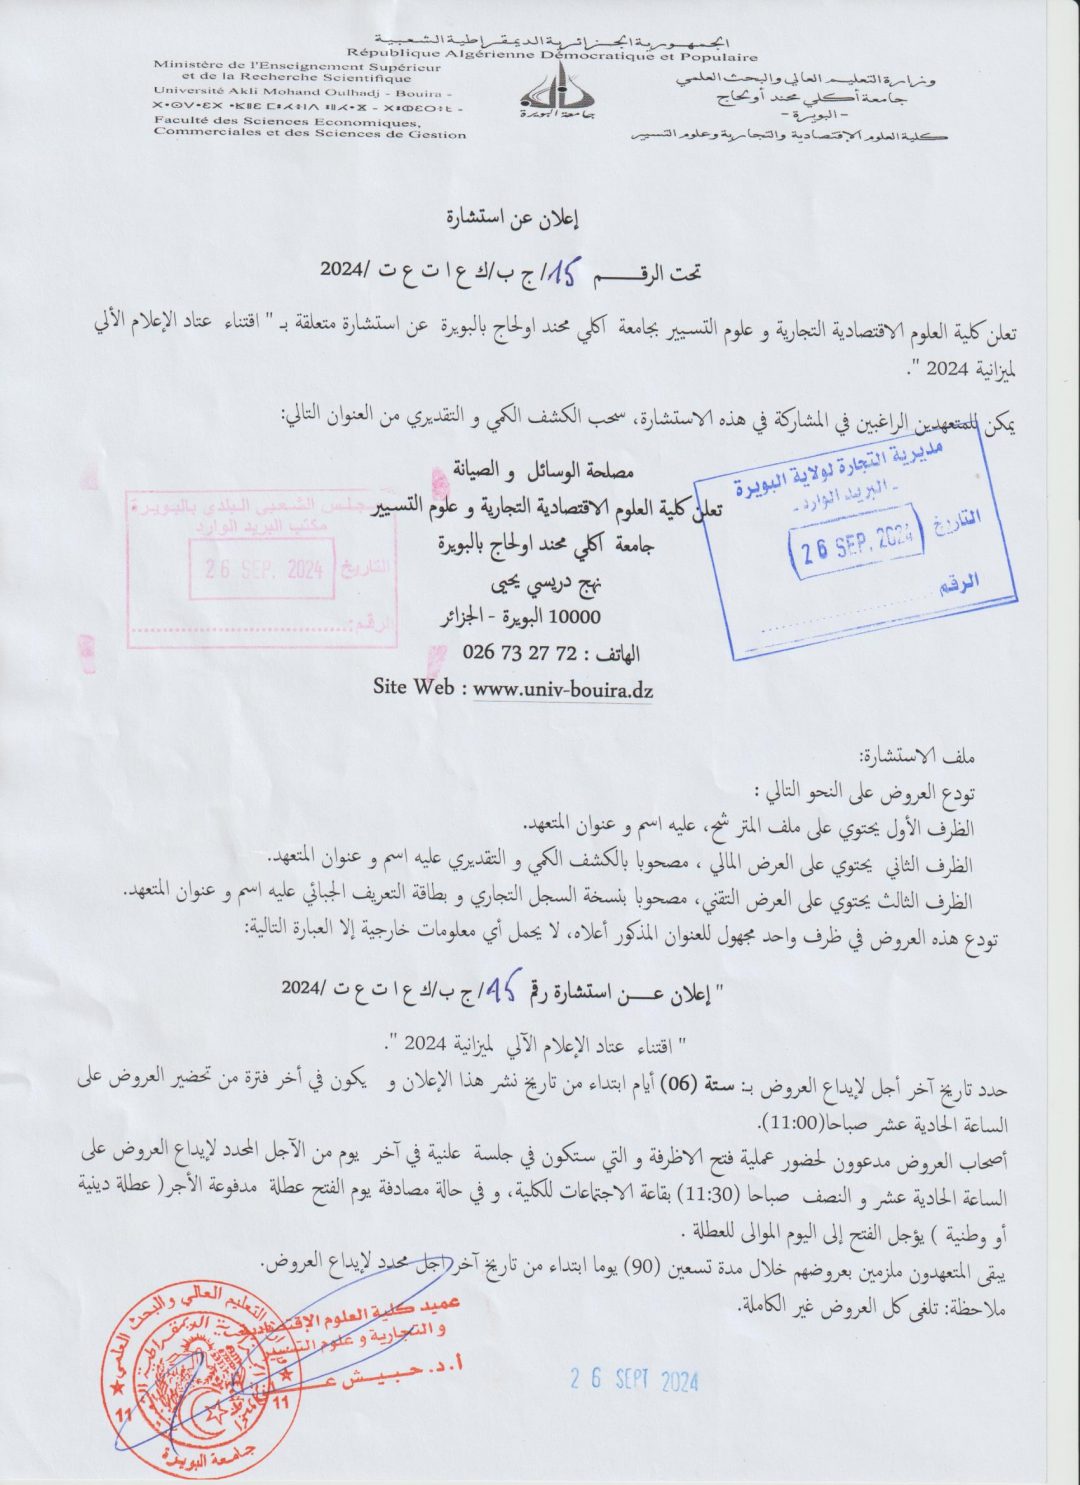 الجمهورية الجزائرية الديمقراطية الشعبية
République Algérienne Démocratique et Populaire
Ministère de l'Enseignement Supérieur
et de la Recherche Scientifique
Université Akli Mohand Oulhadj - Bouira -
Faculté des Sciences Economiques,
Commerciales et des Sciences de Gestion
جامعة البويرة
وزارة التعليم العالي والبحث العلمي
جامعة أكلي محند أولحاج
- البويرة -
كلية العلوم الإقتصادية والتجارية وعلوم التسيير
إعلان عن استشارة
تحت الرقــــــم 15/ ج ب/ك ع ا ت ع ت /2024
تعلن كلية العلوم الاقتصادية التجارية و علوم التسيير بجامعة اكلي محند اولحاج بالبويرة عن استشارة متعلقة بـ " اقتناء عتاد الإعلام الألي
لميزانية 2024 ".
يمكن للمتعهدين الراغبين في المشاركة في هذه الاستشارة، سحب الكشف الكمي و التقديري من العنوان التالي:
مصلحة الوسائل و الصيانة
تعلن كلية العلوم الاقتصادية التجارية و علوم التسيير
جامعة اكلي محند اولحاج بالبويرة
نهج دريسي يحيى
10000 البويرة - الجزائر
الهاتف : 72 27 73 026
Site Web : www.univ-bouira.dz
مديرية التجارة لولاية البويرة
- البريد الوارد -
التاريخ 26 SEP. 2024
الرقم
المجلس الشعبي البلدي بالبويرة
مكتب البريد الوارد
التاريخ 26 SEP. 2024
الرقم:
ملف الاستشارة:
تودع العروض على النحو التالي :
الظرف الأول يحتوي على ملف المتر شح، عليه اسم و عنوان المتعهد.
الظرف الثاني يحتوي على العرض المالي ، مصحوبا بالكشف الكمي و التقديري عليه اسم و عنوان المتعهد.
الظرف الثالث يحتوي على العرض التقني، مصحوبا بنسخة السجل التجاري و بطاقة التعريف الجبائي عليه اسم و عنوان المتعهد.
تودع هذه العروض في ظرف واحد مجهول للعنوان المذكور أعلاه، لا يحمل أي معلومات خارجية إلا العبارة التالية:
" إعلان عـــن استشارة رقم 15/ ج ب/ك ع ا ت ع ت /2024
" اقتناء عتاد الإعلام الآلي لميزانية 2024 ".
حدد تاريخ آخر أجل لإيداع العروض بـ: ستة (06) أيام ابتداء من تاريخ نشر هذا الإعلان و يكون في أخر فترة من تحضير العروض على
الساعة الحادية عشر صباحا(11:00).
أصحاب العروض مدعوون لحضور عملية فتح الاظرفة و التي ستكون في جلسة علنية في آخر يوم من الآجل المحدد لإيداع العروض على
الساعة الحادية عشر و النصف صباحا (11:30) بقاعة الاجتماعات للكلية، و في حالة مصادفة يوم الفتح عطلة مدفوعة الأجر( عطلة دينية
أو وطنية ) يؤجل الفتح إلى اليوم الموالى للعطلة .
يبقى المتعهدون ملزمين بعروضهم خلال مدة تسعين (90) يوما ابتداء من تاريخ آخر اجل محدد لإيداع العروض.
ملاحظة: تلغى كل العروض غير الكاملة.
عميد كلية العلوم الإقتصادية
و التجارية و علوم التسيير
أ.د. حبيش
التعليم العالي والبحث العلمي
جامعة البويرة
11
11
26 SEPT 2024